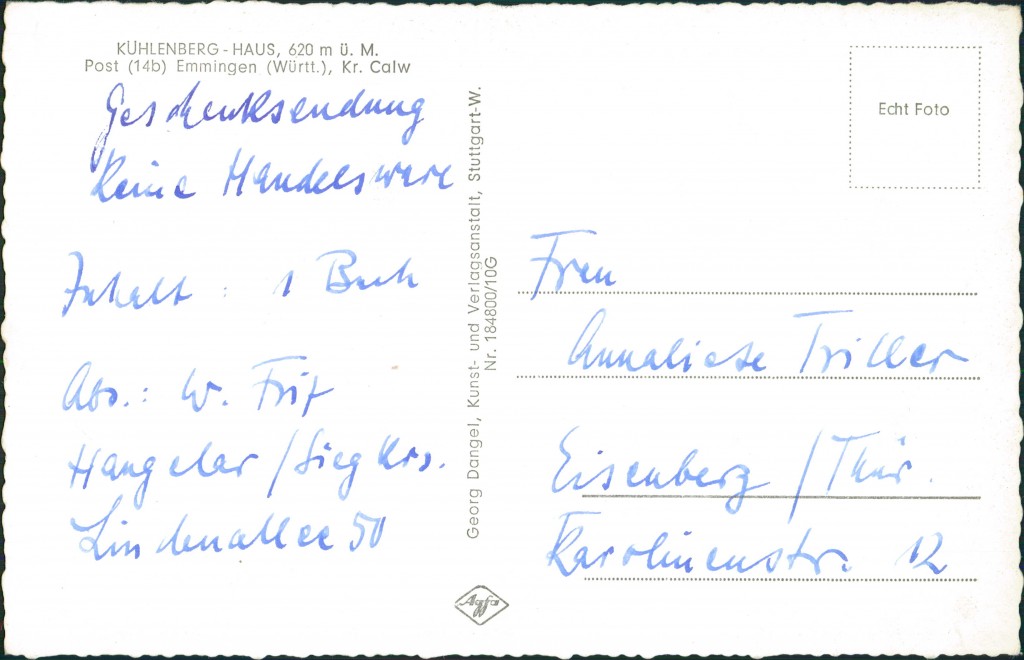 KÜHLENBERG - HAUS, 620 m ü. M.
Post (14b) Emmingen (Württ.), Kr. Calw
Geschenksendung
Keine Handelsware
Inhalt : 1 Buch
Abs.: W. Fritz
Hangelar / Siegkrs.
Lindenallee 50
Georg Dangel, Kunst- und Verlagsanstalt, Stuttgart-W.
Nr. 184800/10G
Agfa
Echt Foto
Frau
Annaliese Triller
Eisenberg / Thür.
Karolinenstr. 12